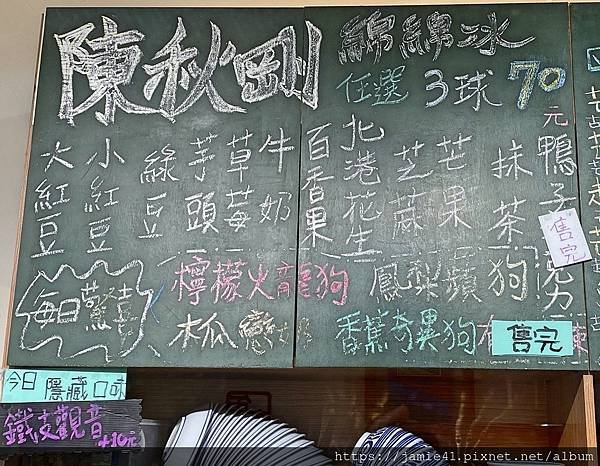 陳秋剛
綿綿冰
任選3球70元
大紅豆
小紅豆
綠豆
芋頭
草莓
牛奶
百香果
北港花生
芝麻
芒果
抹茶
鴨子
售完
每日驚喜
檸檬火龍狗
鳳梨蘋狗
木瓜
香蕉奇異狗
售完
今日隱藏口味
鐵支觀音
+10元
https://jamie41.pixnet.net/album